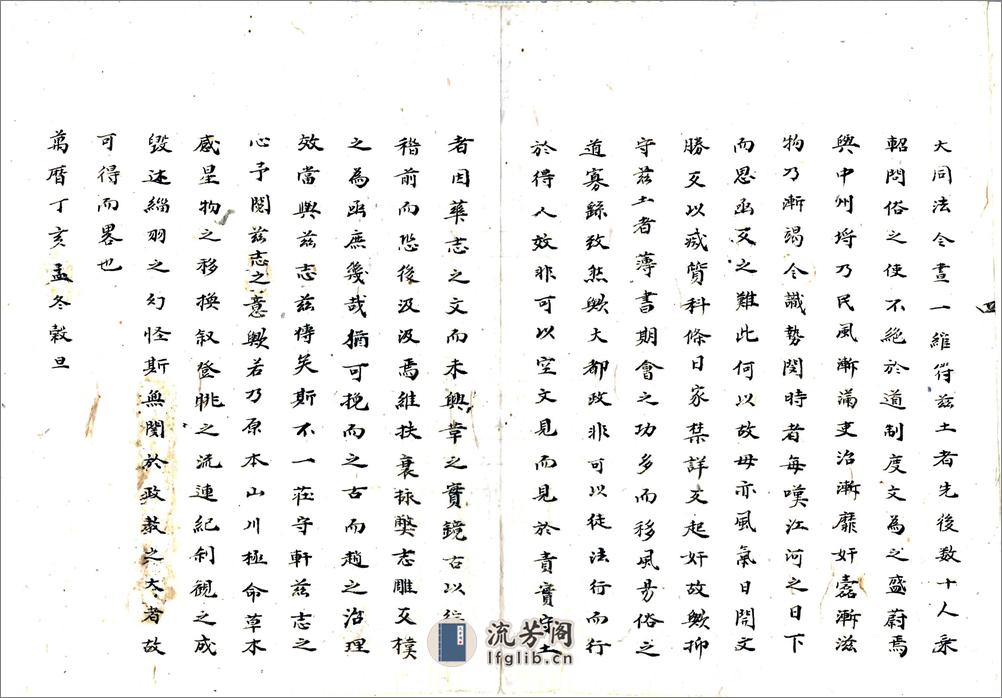 大同法令晝一維符茲土者先後数十人乘
軺問俗之使不絕於道制度文為之盛蔚焉
與中州埒乃民風漸漓吏治漸靡奸蠹漸滋
物乃漸竭令識勢閱時者每嘆江河之日下
而思亟反之難此何以故毋亦風氣日開文
勝反以戚質科條日家禁詳反起奸故歟抑
守茲土者薄書期會之功多而移風易俗之
道寡繇致然歟大都政非可以徒法行而行
於得人效非可以空文見而見於責實守土
者因華志之文而未興韋之實鏡古以
稽前而恐後汲汲焉維扶衰捄獘志雕反樸
之為亟庶幾哉猶可挽而之古而趨之治理
效當與茲志茲恃矣斯不一茬守軒茲志之
心予閱茲志之意歟若乃原本山川極命草木
感星物之移換叙登眺之流連紀剎觀之成
毀述緇羽之幻怪斯無関於政教之大者故
可得而畧也
萬曆丁亥孟冬穀旦
四
流芳阁
lfglib.cn